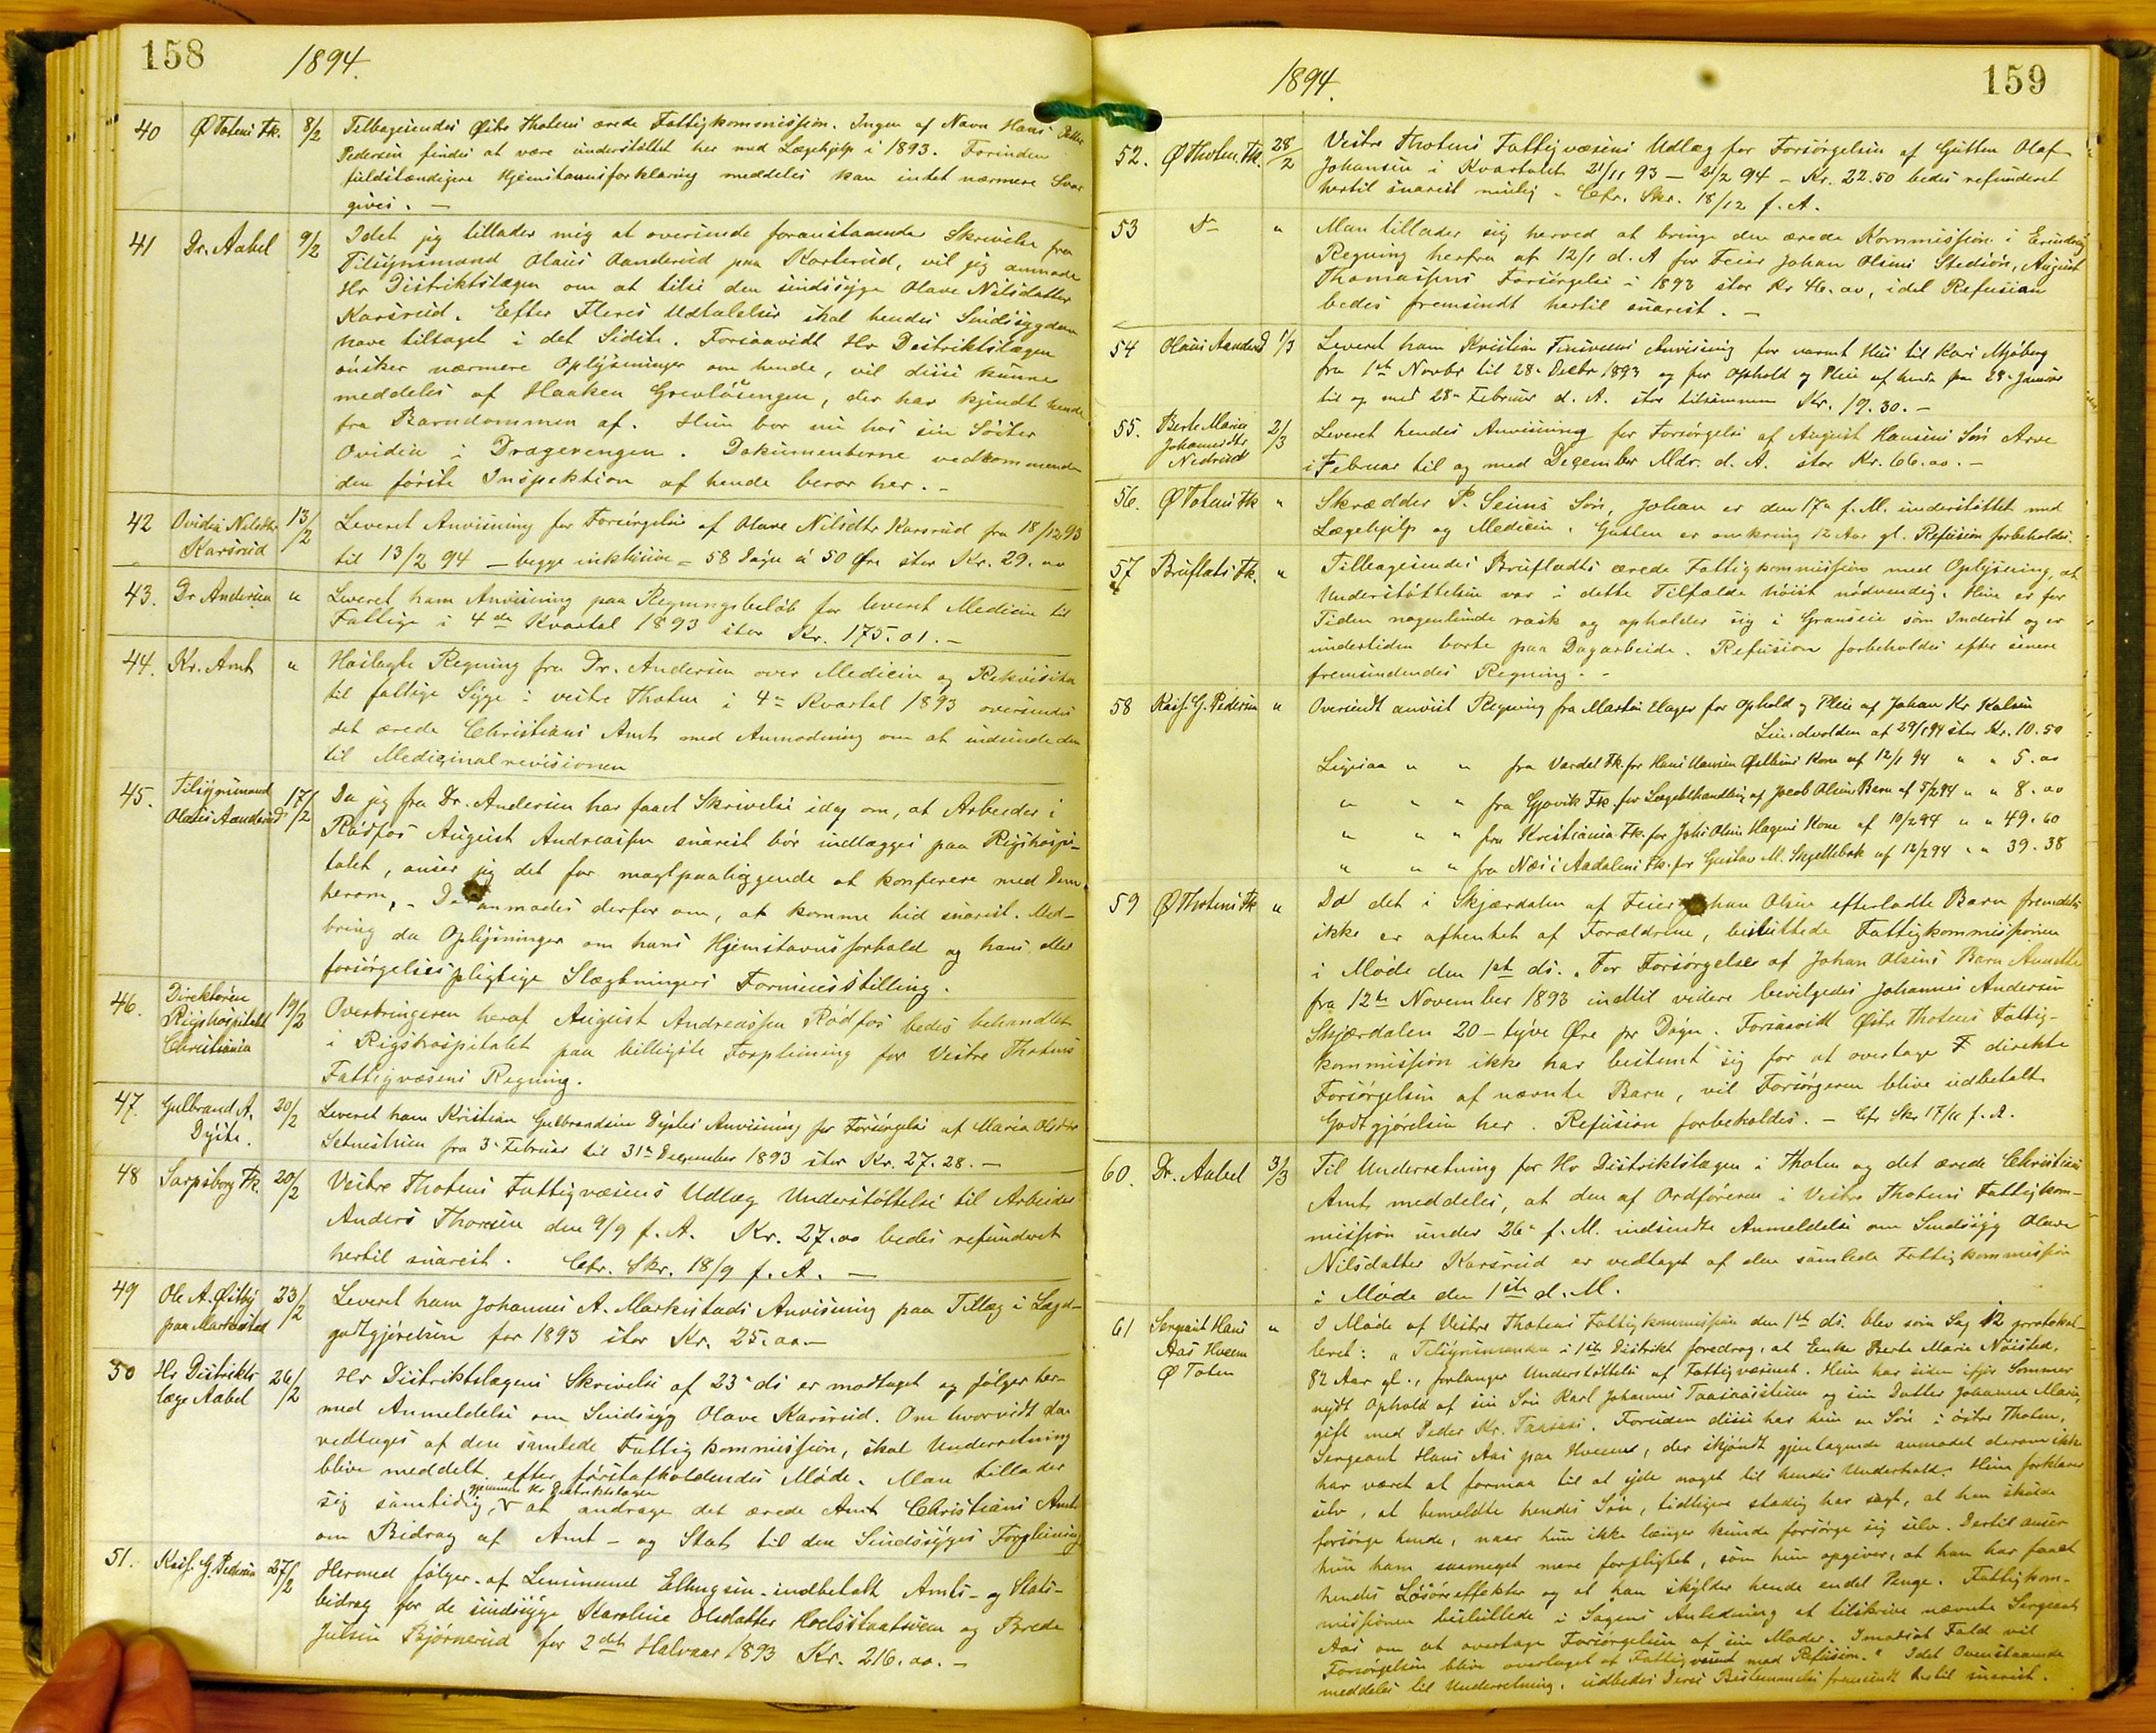 158
1894.
40 Ø Totens Fk. 8/2 Tilbagesendes Østre Thotens ærede Fattigkommission. Ingen af Navn Hans Petter
Pedersen findes at være understøttet her med Lægehjelp i 1893. Forinden
fuldstændigere Hjemstavnsforklaring meddeles kan intet nærmere Svar
gives. —
41 Dr. Aabel 9/2 Idet jeg tillader mig at oversende foranstaaende Skrivelse fra
Tilsynsmand Olaus Aanderud paa Karterud, vil jeg anmode
Hr Distriktslægen om at tilse den sindssyge Olave Nilsdatter
Karsrud. Efter Fleres Udtalelser skal hendes Sindssygdom
have tiltaget i det Sidste. Forsaavidt Hr Distriktslægen
ønsker nærmere Oplysninger om hende, vil disse kunne
meddeles af Haaken Grevløsengen, der har kjendt hende
fra Barndommen af. Hun bor nu hos sin Søster
Ovidia i Dragerengen. Dokumenterne vedkommende
den første Inspektion af hende beror her. —
42 Ovidia Nilsdtr 13/2 Leveret Anvisning for Forsørgelse af Olave Nilsdtr Karsrud fra 18/12 93
Karsrud til 13/2 94 — begge inklusive = 58 Døgn á 50 Øre stor Kr. 29. oo
43. Dr Andersen " Leveret ham Anvisning paa Regningsbeløb for leveret Medicin til
Fattige i 4de Kvartal 1893 stor Kr. 175.01. —
44. Kr. Amt " Haslagte Regning fra Dr. Andersen over Medicin og Rekvisita
til fattige Syge i vestre Thoten i 4de Kvartal 1893 oversendes
det ærede Christians Amt med Anmodning om at indsende den
til Medicinalrevisionen
45. Tilsynsmand 17/2 Da jeg fra Dr. Andersen har faaet Skrivelse idag om, at Arbeider i
Olaus Aanderud Rødfos August Andreassen snarest bør indlægges paa Rigshospi-
talet, anser jeg det for magtpaaliggende at konferere med Dem
herom, — De anmodes derfor om, at komme hid snarest. Med-
bring da Oplysninger om hans Hjemstavnsforhold og hans eller
forsørgelsespligtige Slægtningers Formuesstilling.
46. Direktøren 19/2 Overbringeren heraf August Andreassen Rødfos bedes behandlet
Rigshospitalet i Rigshospitalet paa billigste Forpleining for Vestre Thotens
Christiania Fattigvæsens Regning.
47. Gulbrand A. 20/2 Leveret ham Kristian Gulbrandsen Dystes Anvisning for Forsørgelse af Maria Olsdtr
Dyste. fra 3. Februar til 31te December 1893 stor Kr. 27.28. —
48 Sarpsborg Fk. 20/2 Vestre Thotens Fattigvæsens Udlæg Understøttelse til Arbeider
Anders Thoresen den 9/9 f. A. Kr. 27.oo bedes refunderet
hertil snarest. Cfr. Skr. 18/9 f. A. —
49 Ole A. Østby 23/2 Leveret ham Johannes A. Markestads Anvisning paa Tillæg i Lægd-
paa Markestad godtgjørelsen for 1893 stor Kr. 25.oo —
50 Hr Distrikts- 26/2 Hr Distriktslægens Skrivelse af 23' ds er modtaget og følger her-
læge Aabel med Anmeldelse om Sindssyg Olave Karsrud. Om hvorvidt den
vedtages af den samlede Fattigkommission, skal Underretning
blive meddelt efter førstafholdendes Møde. Man tillader
gjennem Hr Distriktslægen
sig samtidig, at andrage det ærede Amt Christians Amt
om Bidrag af Amt- og Stat til den Sindssyges Forpleining
51. Kass. G. Pedersen 27/2 Hermed følger af Lensmand Ellingsen indbetalt Amts- og Stats-
bidrag for de sindssyge Karoline Olsdatter og Brede
Julsen Bjørnerud for 2det Halvaar 1893 Kr. 216.oo. —
1894.
159
52. Ø Thoten Fk. 28/2 Vestre Thotens Fattigvæsens Udlæg for Forsørgelsen af Gutten Olaf
Johansen i Kvartalet 21/11 93 — 21/2 94 — Kr. 22.50 bedes refunderet
hertil snarest mulig. Cfr. Skr. 18/12 f. A.
53 Do " Man tillader sig herved at bringe den ærede Kommission i Erindring
Regning herfra af 12/1 d. A for Feier Johan Olsens Stedsøn, August
Thomassens Forsørgelse i 1893 stor Kr 46.oo, idet Refusion
bedes fremsendt hertil snarest. —
54 Olaus Aanderud 1/3 Leveret ham Kristian Anvisning for varmt Hus til Kari Mjøberg
fra 1ste Novbr til 28. Decbr 1893 og for Ophold og Pleie af hende fra 28. Januar
til og med 28de Februar d. A. stor tilsammen Kr. 19.30. —
55. Berte Maria 2/3 Leveret hendes Anvisning for Forsørgelse af August Hansens Søn Arve
Johannesdtr i Februar til og med December Mdr. d. A. stor Kr. 66.oo. —
Nedrud
56. Ø Totens Fk " Skrædder P. Seines Søn, Johan er den 17de f. M. understøttet med
Lægehjelp og Medicin. Gutten er omkring 12 Aar gl. Refusion forbeholdes.
57 Bruflats Fk. " Tilbagesendes Brufladts ærede Fattigkommission med Oplysning, at
Understøttelsen var i dette Tilfælde høist nødvendig. Hun er for
Tiden nogenlunde rask og opholder sig i Granseie som Inderst og er
undertiden borte paa Dagarbeide. Refusion forbeholdes efter senere
fremsendendes Regning. —
58 Kass. G. Pedersen " Oversendt anvist Regning fra Martin Hager for Ophold og Pleie af Johan Kr Kalsen
Lundvolden af 29/1 94 stor Kr. 10.50
Ligesaa " " fra Vardal Fk. for Hans Hansen Østbens Kone af 12/1 94 " " 5.oo
" " " fra Gjøvik Fk. for Lægebehandling af Jacob Olsens Barn af 5/2 94 " " 8.oo
" " " fra Kristiania Fk. for Johs Olsen Hagens Kone af 10/2 94 " " 49.60
" " " fra Næs i Aadalens Fk. for Gustav M. af 12/2 94 " " 39.38
59 Ø Thotens Fk " Da det i Skjærdalen af Feier Johan Olsen efterladte Barn fremdeles
ikke er afhentet af Forældrene, besluttede Fattigkommissionen
i Møde den 1ste ds. „For Forsørgelse af Johan Olsens Barn Annette
fra 12te November 1893 indtil videre bevilgedes Johannes Andersen
Skjærdalen 20 — tyve Øre pr Døgn. Forsaavidt Østre Thotens Fattig-
kommission ikke har bestemt sig for at overtage F direkte
Forsørgelsen af nævnte Barn, vil Forsørgeren blive udbetalt
Godtgjørelsen her. Refusion forbeholdes. — Cfr Skr 17/11 f. A.
60. Dr. Aabel 3/3 Til Underretning for Hr Distriktslægen i Thoten og det ærede Christians
Amt meddeles, at den af Ordføreren i Vestre Thotens Fattigkom-
mission under 26de f. M. indsendte Anmeldelse om Sindssyg Olave
Nilsdatter Karsrud er vedtaget af den samlede Fattigkommission
i Møde den 1ste d. M.
61 Sergeant Hans " I Møde af Vestre Thotens Fattigkommission den 1ste ds. blev som Sag 12 protokol-
Aas Hveem leret: „Tilsynsmanden i 1ste Distrikt foredrog, at Enke Berte Marie Nøisted,
Ø Toten 82 Aar gl., forlanger Understøttelse af Fattigvæsenet. Hun har siden ifjor Sommer
nydt Ophold af sin Søn Karl Johannes og sin Datter Johanne Marie,
gift med Peder Kr. Foruden disse har hun en Søn i østre Thoten,
Sergeant Hans Aas paa Hveem, der skjøndt gjentagende anmodet derom ikke
har været at formaa til at yde noget til hendes Underhold. Hun forklarer
selv, at bemeldte hendes Søn, tidligere stadig har sagt, at han skulde
forsørge hende, naar hun ikke længer kunde forsørge sig selv. Dertil anser
hun ham saameget mere forpligtet, som hun opgiver, at han har faaet
hendes Løsøreffekter og at han skylder hende endel Penge. Fattigkom-
missionen besluttede i Sagens Anledning at tilskrive nævnte Sergeant
Aas om at overtage Forsørgelsen af sin Moder. I modsat Fald vil
Forsørgelsen blive overtaget af Fattigvæsenet med Refusion." Idet Ovenstaaende
meddeles til Underretning, udbedes Deres Bestemmelse fremsendt hertil snarest.